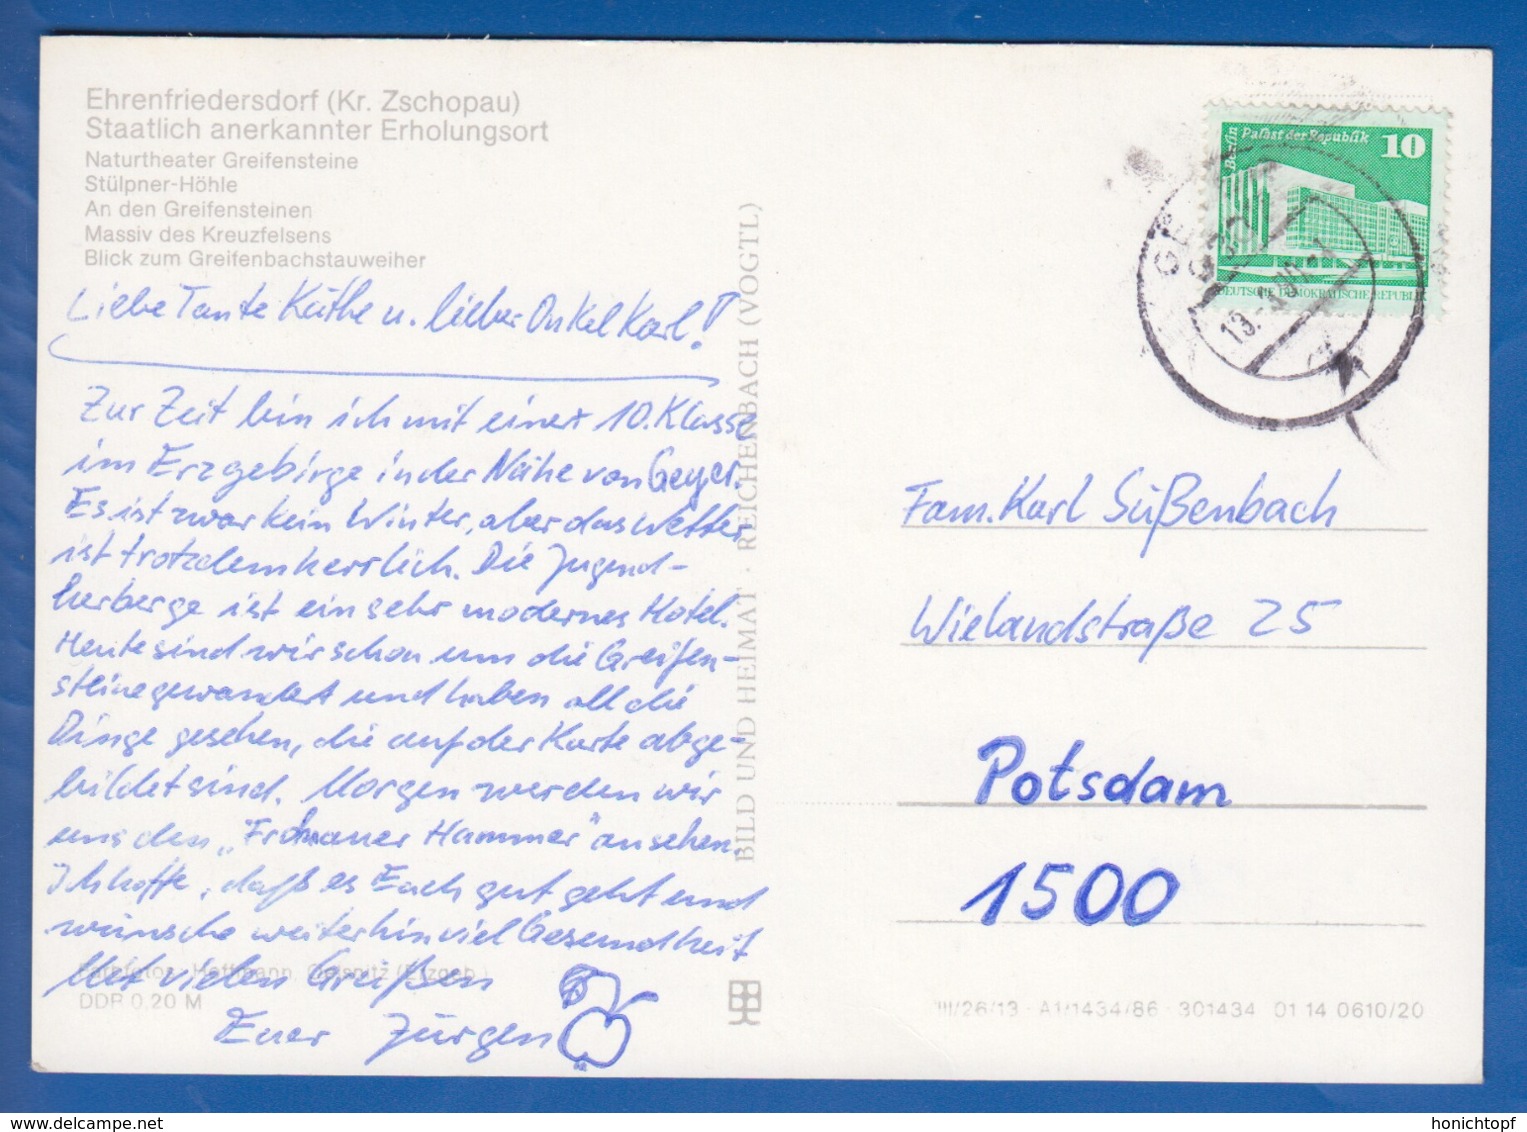 Ehrenfriedersdorf (Kr. Zschopau)
Staatlich anerkannter Erholungsort
Naturtheater Greifensteine
Stülpner-Höhle
An den Greifensteinen
Massiv des Kreuzfelsens
Blick zum Greifenbachstauweiher
Liebe Tante Käthe u. lieber Onkel Karl!
Zur Zeit bin ich mit einer 10. Klasse
im Erzgebirge in der Nähe von Geyer.
Es ist zwar kein Winter, aber das Wetter
ist trotzdem herrlich. Die Jugend-
herberge ist ein sehr modernes Hotel.
Heute sind wir schon um die Greifen-
steine gewandert und haben all die
Dinge gesehen, die auf der Karte abge-
bildet sind. Morgen werden wir
uns den „Frohnauer Hammer" ansehen.
Ich hoffe, daß es Euch gut geht und
wünsche weiterhin viel Gesundheit
Mit vielen Grüßen
Euer Jürgen
Farbfotos: Hoffmann, Oelsnitz (Erzgeb.)
DDR 0,20 M
BILD UND HEIMAT · REICHENBACH (VOGTL)
Berlin Palast der Republik 10
DEUTSCHE DEMOKRATISCHE REPUBLIK
Fam. Karl Süßenbach
Wielandstraße 25
Potsdam
1500
III/26/13 · A1/1434/86 · 301434 01 14 0610/20
www.delcampe.net
honichtopf